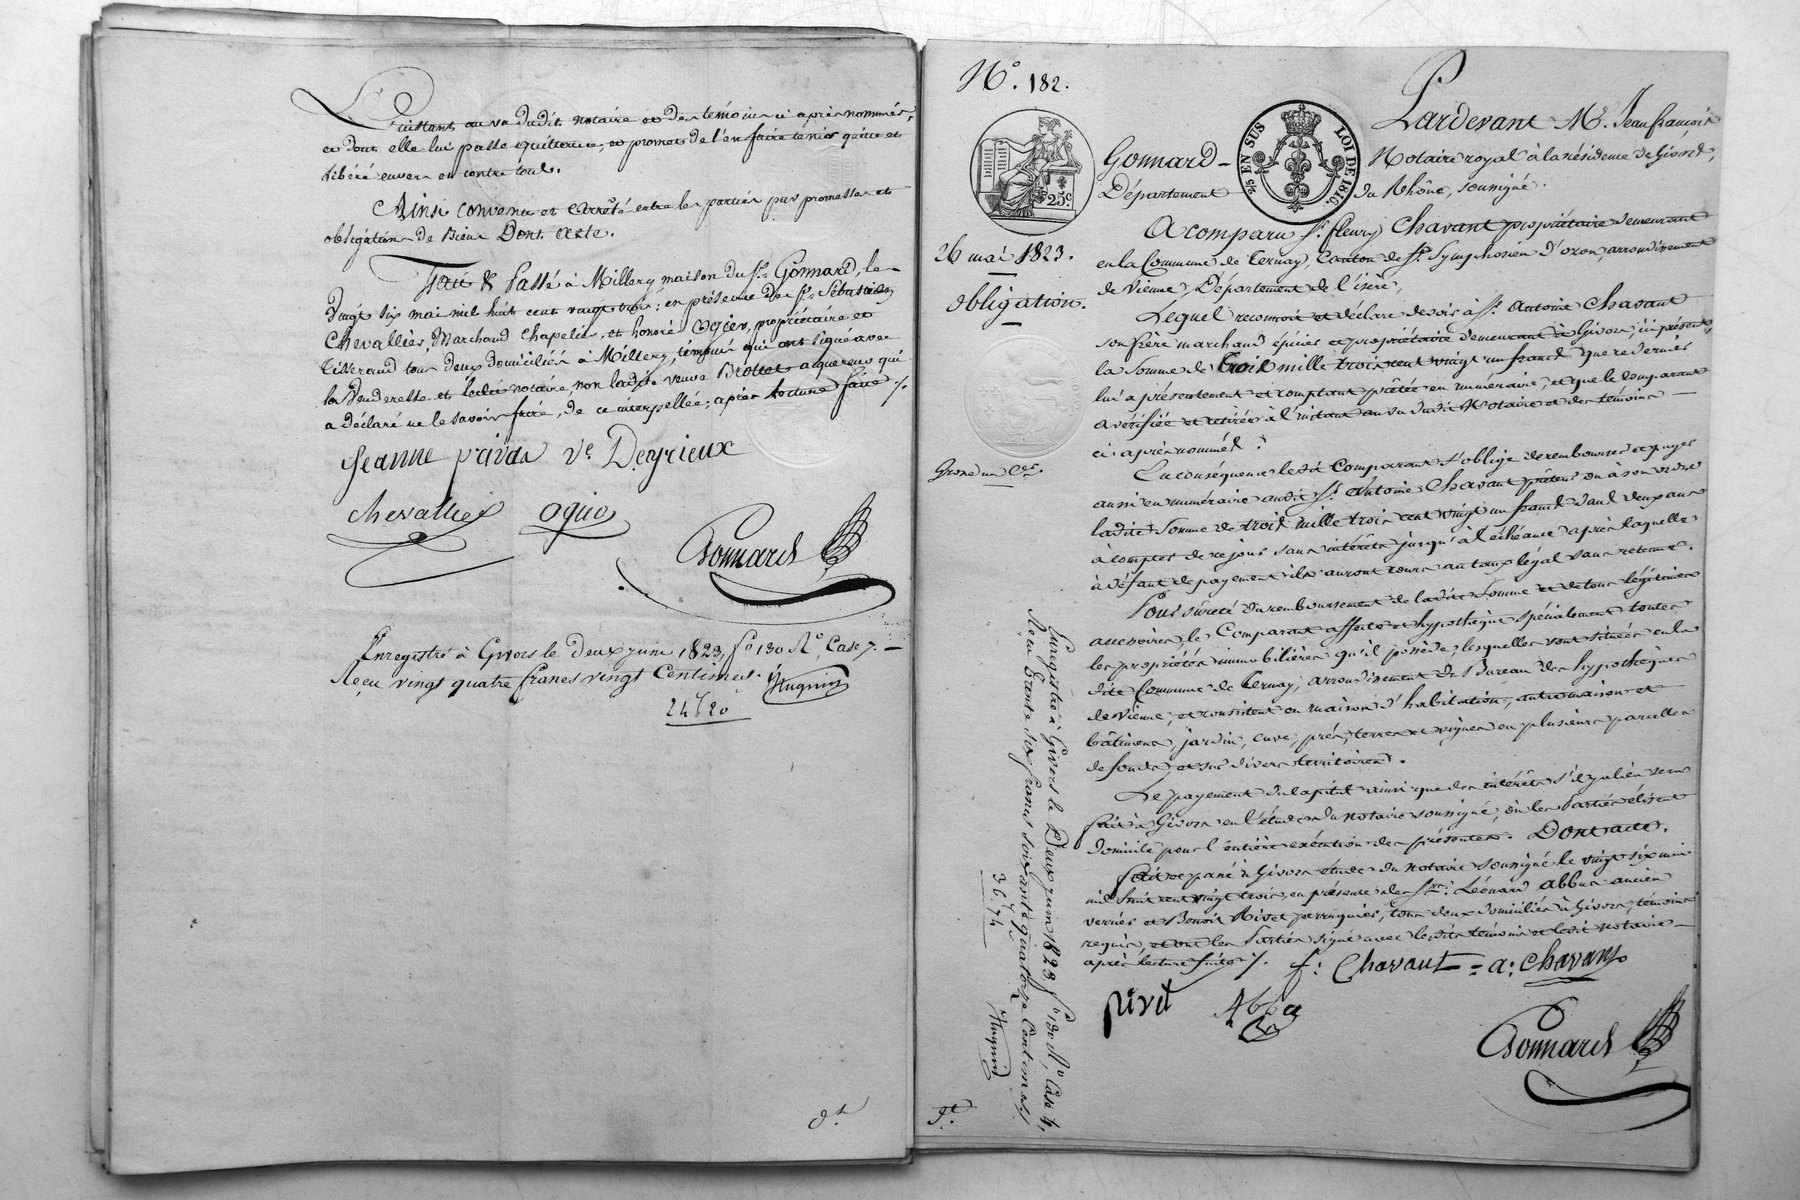 L'instant au vu dudit notaire et des témoins ci après nommés,
et dont elle lui passe quittance, et promet de l'en faire tenir quitte et
libéré envers et contre tous.
Ainsi convenu et arrêté entre les parties par promesses et
obligations de biens Dont acte.
Fait & Passé à Millery maison du Sr. Gonnard, le
vingt six mai mil huit cent vingt trois; en présence des Srs Sébastien
Chevallier, Marchand Chapelier, et honoré ogier, propriétaire et
tisserand tous deux domiciliés à Millery, témoins qui ont signé avec
la Venderesse et ledit notaire, non ladite veuve acquereur qui
a déclaré ne le savoir faire, de ce interpellée; après lecture faite ./.
Jeanne privas ve. Deyrieux
Chevallier ogier
Gonnard
Enregistré à Givors le deux juin 1823, fo 130 Ro, Case 7.
Reçu vingt quatre francs vingt Centimes. Hugnin
24f20
No. 182.
25c
2/5 EN SUS LOI DE 1816.
26 mai 1823.
obligation.
Grosse un Cer
Pardevant Me. Jean françois
Gonnard Notaire royal à la résidence de Givors,
Département du Rhône, soussigné.
A comparu Sr. fleury Chavant propriétaire demeurant
en la Commune de Ternay, Canton de St. Symphorien d'ozon, arrondissement
de Vienne, Département de l'isère,
Lequel reconnoit et déclare devoir à Sr. Antoine Chavant
son frère marchand épicier et propriétaire demeurant à Givors, ici présent,
la somme de trois mille trois cent vingt un francs que ce dernier
lui a présentement et comptant prêtée en numéraire, et que le Comparant
a vérifiée et retirée à l'instant au vu dudit Notaire et des témoins
ci après nommés.
En conséquence ledit Comparant s'oblige de rembourser et payer
aussi en numéraire audit Sr. Antoine Chavant présent ou à son ordre
ladite Somme de trois mille trois cent vingt un francs dans deux ans
à compter de ce jour sans intérêts jusqu'à l'échéance après laquelle
à défaut de payement ils auront cours au taux légal sans retenue.
Pour sûreté du remboursement de ladite somme et de tous légitimes
accessoires, le Comparant affecte et hypothèque spécialement toutes
les propriétés immobilières qu'il possède, lesquelles sont situées en la
dite Commune de Ternay, arrondissement du Bureau des hypothèques
de Vienne, et consistent en maison d'habitation, autre maison et
bâtimens, jardin, cuve, prés, terres et vignes en plusieurs parcelles
de fonds et sur divers territoires.
Le payement du Capital ainsi que des intérêts s'il y a lieu sera
fait à Givors en l'étude du notaire soussigné, où les Parties élisent
domicile pour l'entière exécution des présentes. Dont acte.
Fait et passé à Givors étude du notaire soussigné le vingt six mai
mil huit cent vingt trois, en présence des Srs. Léonard abbus ancien
verrier et Benoit Rivet perruquier, tous deux domiciliés à Givors, témoins
requis, et ont les Parties signé avec lesdits témoins et ledit notaire
après lecture faite ./. f: Chavant = a: Chavant
rivet
Gonnard
Enregistré à Givors le Deux juin 1823 fo 130 Ro Case 4,
Reçu trente six francs soixante quatorze Centimes
36f74 Hugnin